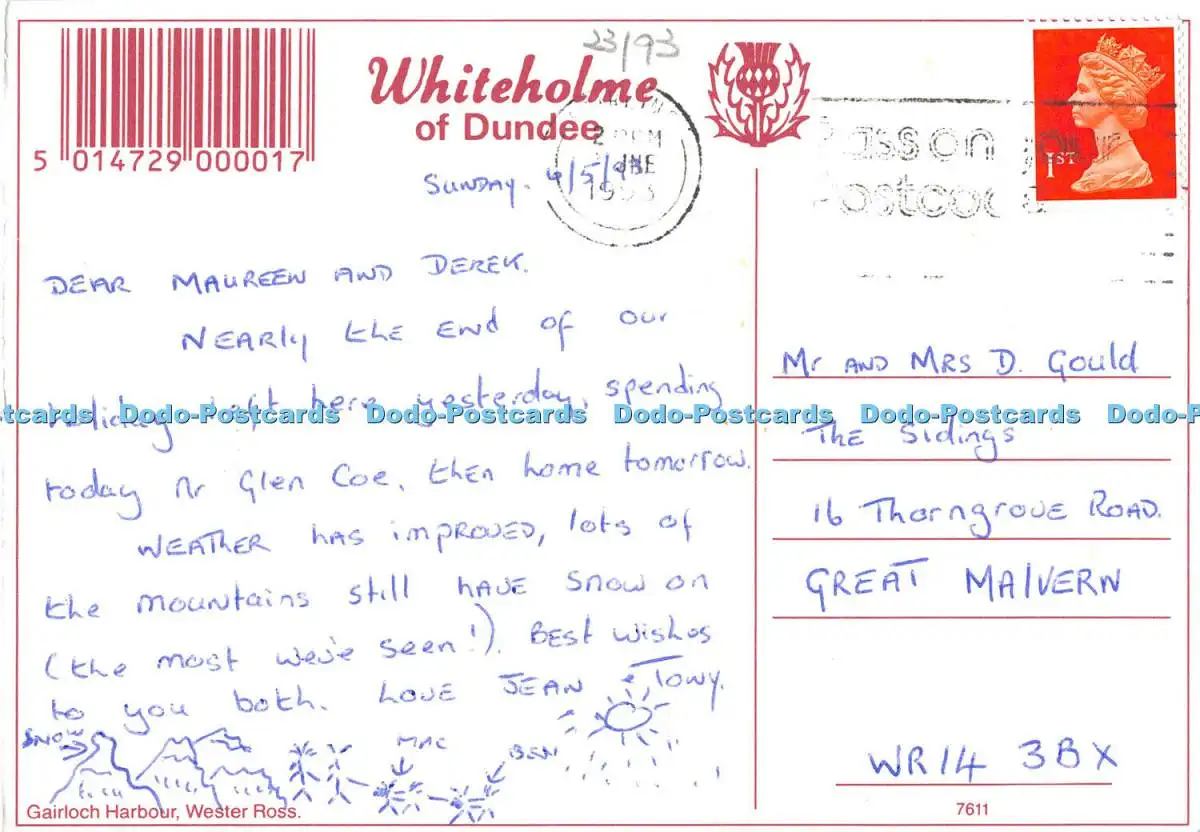 23/93
Whiteholme
of Dundee
5 014729 000017
2 PM
1993
Pass on your
Postcode
1ST
SUNDAY.
DEAR MAUREEN AND DEREK.
NEARLY the END of our
holiday left here yesterday, spending
today Nr Glen Coe, then home tomorrow.
WEATHER has improved, lots of
the mountains still have snow on
(the most we've seen!). Best wishes
to you both. Love JEAN & Tony.
SNOW
MAC
BEN
Gairloch Harbour, Wester Ross.
Mr AND MRS D. Gould
The Sidings
16 Thorngrove ROAD.
GREAT MAlVERN
WR14 3BX
7611
Dodo-Postcards Dodo-Postcards Dodo-Postcards Dodo-Postcards